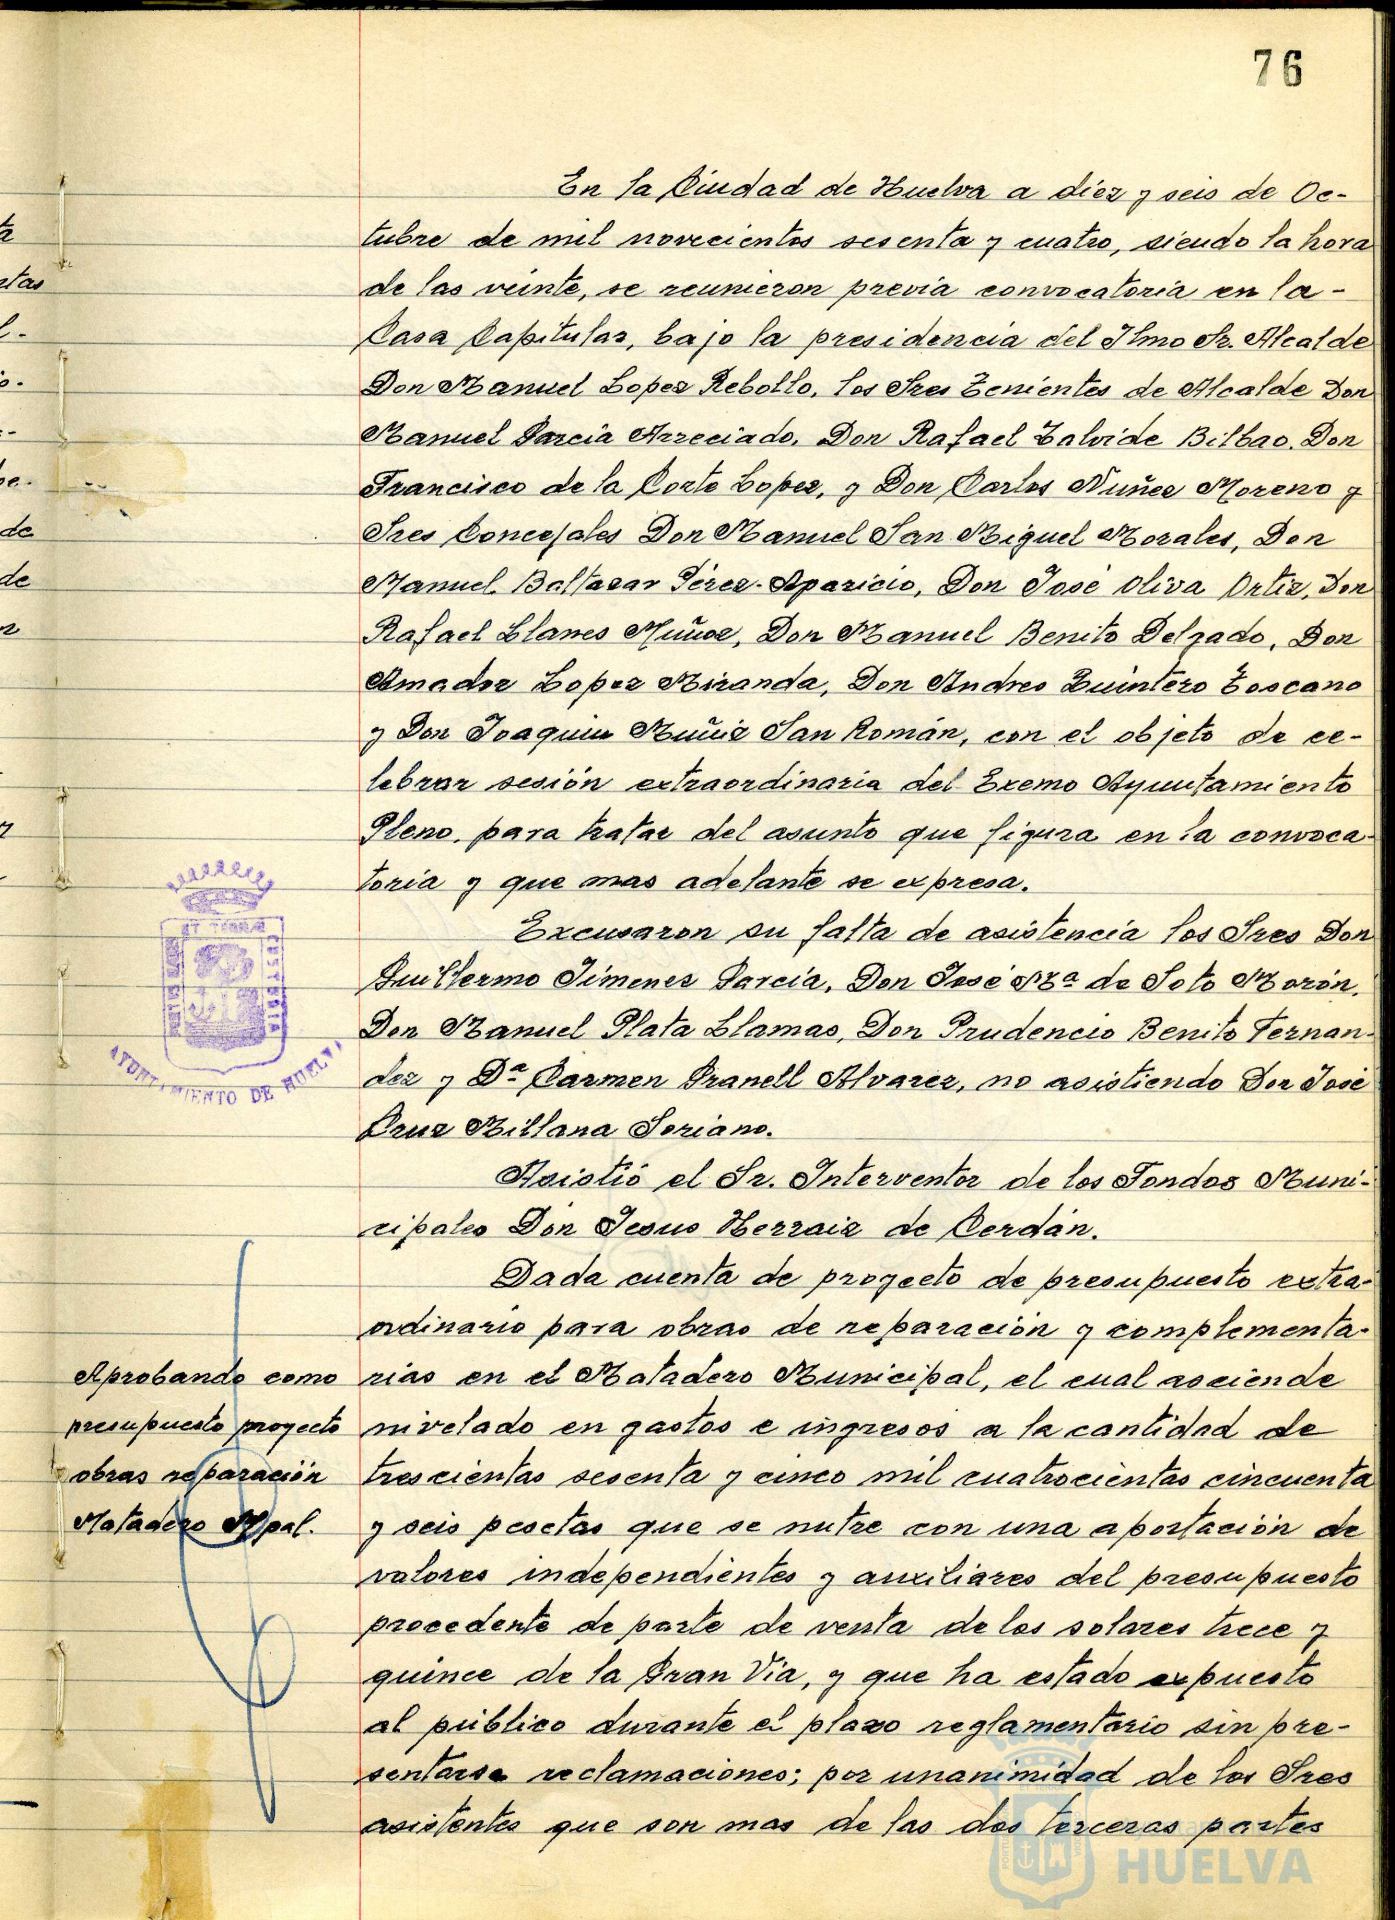 76
En la Ciudad de Huelva a diez y seis de Oc-
tubre de mil novecientos sesenta y cuatro, siendo la hora
de las veinte, se reunieron previa convocatoria en la-
Casa Capitular, bajo la presidencia del Ilmo Sr. Alcalde
Don Manuel Lopez Rebollo, los Sres Tenientes de Alcalde Don
Manuel Garcia Arreciado, Don Rafael Talvide Bilbao. Don
Francisco de la Corte Lopez, y Don Carlos Nuñez Moreno y
Sres Concejales Don Manuel San Miguel Morales, Don
Manuel Baltasar Pérez-Aparicio, Don José Oliva Ortiz, Don
Rafael Llanes Muñoz, Don Manuel Benito Delgado, Don
Amador Lopez Miranda, Don Andres Quintero Toscano
y Don Joaquin Muñiz San Román, con el objeto de ce-
lebrar sesión extraordinaria del Excmo Ayuntamiento
Pleno, para tratar del asunto que figura en la convoca-
toria y que mas adelante se expresa.
Excusaron su falta de asistencia los Sres Don
Guillermo Jimenez Garcia, Don José Mª de Soto Morón,
Don Manuel Plata Llamas, Don Prudencio Benito Fernan-
dez y Dª Carmen Granell Alvarez, no asistiendo Don José
Cruz Millana Soriano.
Asistió el Sr. Interventor de los Fondos Muni-
cipales Don Jesus Herraiz de Cerdán.
Dada cuenta de proyecto de presupuesto extra-
ordinario para obras de reparación y complementa-
rias en el Matadero Municipal, el cual asciende
nivelado en gastos e ingresos a la cantidad de
trescientas sesenta y cinco mil cuatrocientas cincuenta
y seis pesetas que se nutre con una aportación de
valores independientes y auxiliares del presupuesto
procedente de parte de venta de los solares trece y
quince de la Gran Via, y que ha estado expuesto
al público durante el plazo reglamentario sin pre-
sentarse reclamaciones; por unanimidad de los Sres
asistentes que son mas de las dos terceras partes
Aprobando como
presupuesto proyecto
obras reparación
Matadero Mpal.
AYUNTAMIENTO DE HUELVA
PORTUS MARIS
ET TERRAE
CUSTODIA
HUELVA